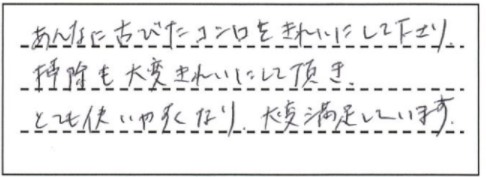 あんなに古びたコンロをきれいにして下さり、
掃除も大変きれいにして頂き、
とても使いやすくなり、大変満足しています。